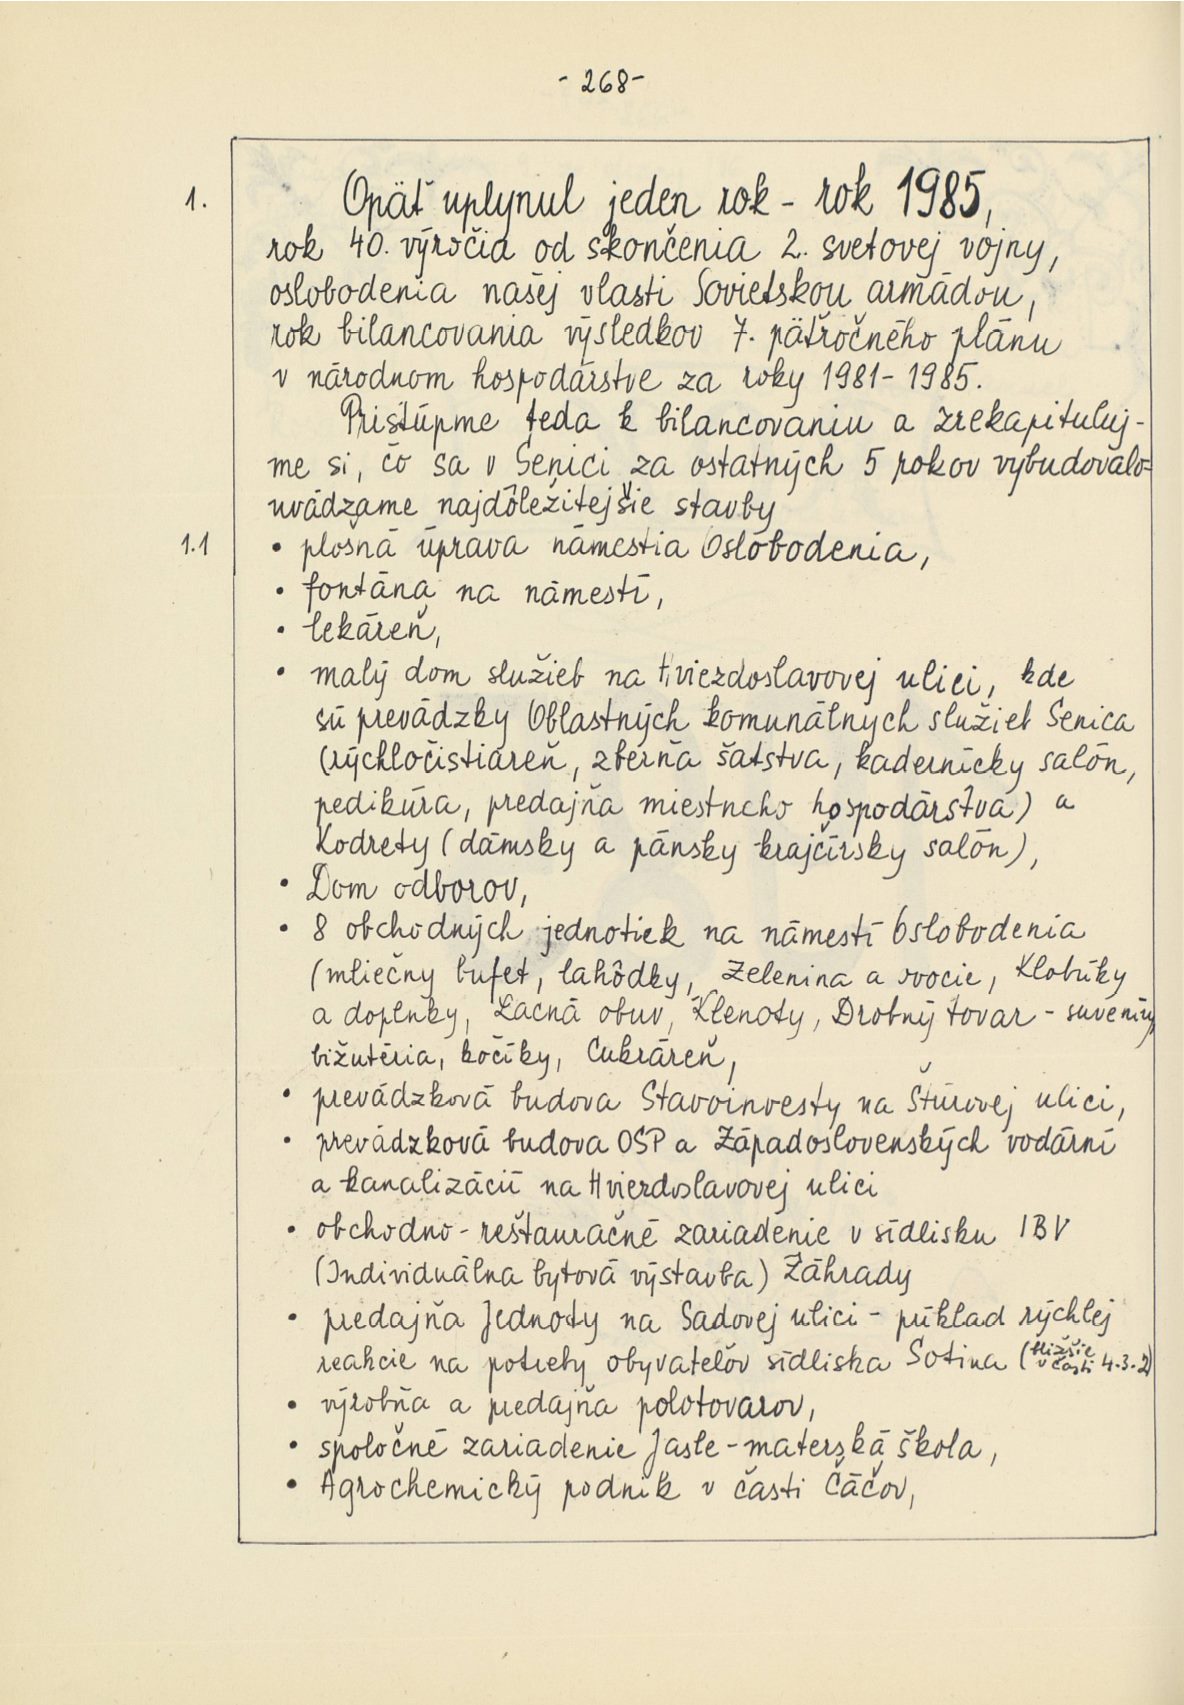 - 268 -
1. Opäť uplynul jeden rok - rok 1985,
rok 40. výročia od skončenia 2. svetovej vojny,
oslobodenia našej vlasti Sovietskou armádou,
rok bilancovania výsledkov 7. päťročného plánu
v národnom hospodárstve za roky 1981 - 1985.
Pristúpme teda k bilancovaniu a zrekapituluj-
me si, čo sa v Senici za ostatných 5 rokov vybudovalo-
uvádzame najdôležitejšie stavby
1.1 • plošná úprava námestia Oslobodenia,
• fontána na námestí,
• lekáreň,
• malý dom služieb na Hviezdoslavovej ulici, kde
sú prevádzky Oblastných komunálnych služieb Senica
(rýchločistiareň, zberňa šatstva, kadernícky salón,
pedikúra, predajňa miestneho hospodárstva) a
Kodrety (dámsky a pánsky krajčírsky salón),
• Dom odborov,
• 8 obchodných jednotiek na námestí Oslobodenia
(mliečny bufet, lahôdky, Zelenina a ovocie, Klobúky
a doplnky, Lacná obuv, Klenoty, Drobný tovar - suveníry,
bižutéria, kočíky, Cukráreň,
• prevádzková budova Stavoinvesty na Štúrovej ulici,
• prevádzková budova OSP a Západoslovenských vodární
a kanalizácií na Hviezdoslavovej ulici
• obchodno - reštauračné zariadenie v sídlisku IBV
(Individuálna bytová výstavba) Záhrady
• predajňa Jednoty na Sadovej ulici - príklad rýchlej
reakcie na potreby obyvateľov sídliska Sotina (bližšie v časti 4.3.2)
• výrobňa a predajňa polotovarov,
• spoločné zariadenie Jasle - materská škola,
• Agrochemický podnik v časti Čáčov,